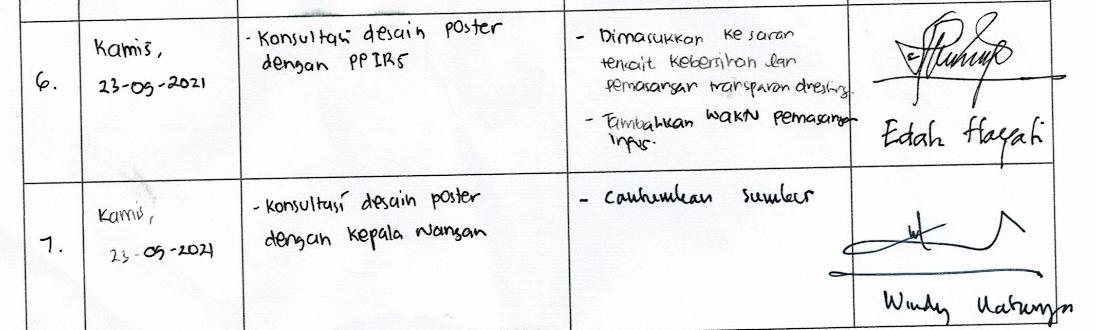 6.
Kamis,
23-09-2021
- Konsultasi desain poster
dengan PPIRS
- Dimasukkan ke saran
terkait kebersihan dan
pemasangan transparan dressing.
- Tambahkan waktu pemasangan
infus.
Edah Hayati
7.
Kamis,
23-09-2021
- Konsultasi desain poster
dengan kepala ruangan
- cantumkan sumber
Windy